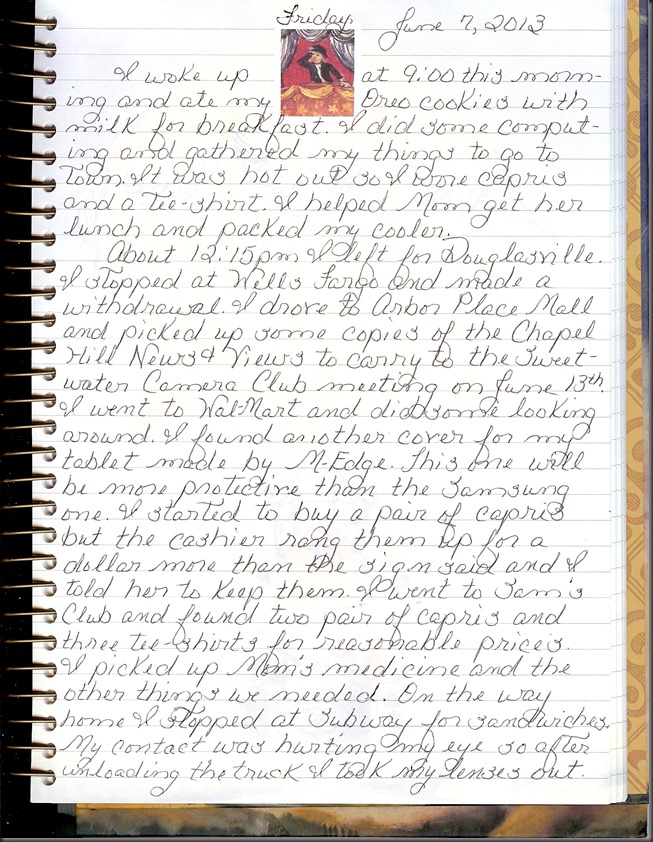 Friday, June 7, 2013
I woke up at 9:00 this morn-
ing and ate my Oreo cookies with
milk for breakfast. I did some comput-
ing and gathered my things to go to
Town. It was hot out so I wore capris
and a Tee-shirt. I helped Mom get her
lunch and packed my cooler.
About 12:15pm I left for Douglasville.
I stopped at Wells Fargo and made a
withdrawal. I drove to Arbor Place Mall
and picked up some copies of the Chapel
Hill News & Views to carry to the Sweet-
water Camera Club meeting on June 13th.
I went to Wal-Mart and did some looking
around. I found another cover for my
tablet made by M-Edge. This one will
be more protective than the Samsung
one. I started to buy a pair of capris
but the cashier rang them up for a
dollar more than the sign said and I
told her to keep them. I went to Sam's
Club and found two pair of capris and
three tee-shirts for reasonable prices.
I picked up Mom's medicine and the
other things we needed. On the way
home I stopped at Subway for sandwiches.
My contact was hurting my eye so after
unloading the truck I took my lenses out.